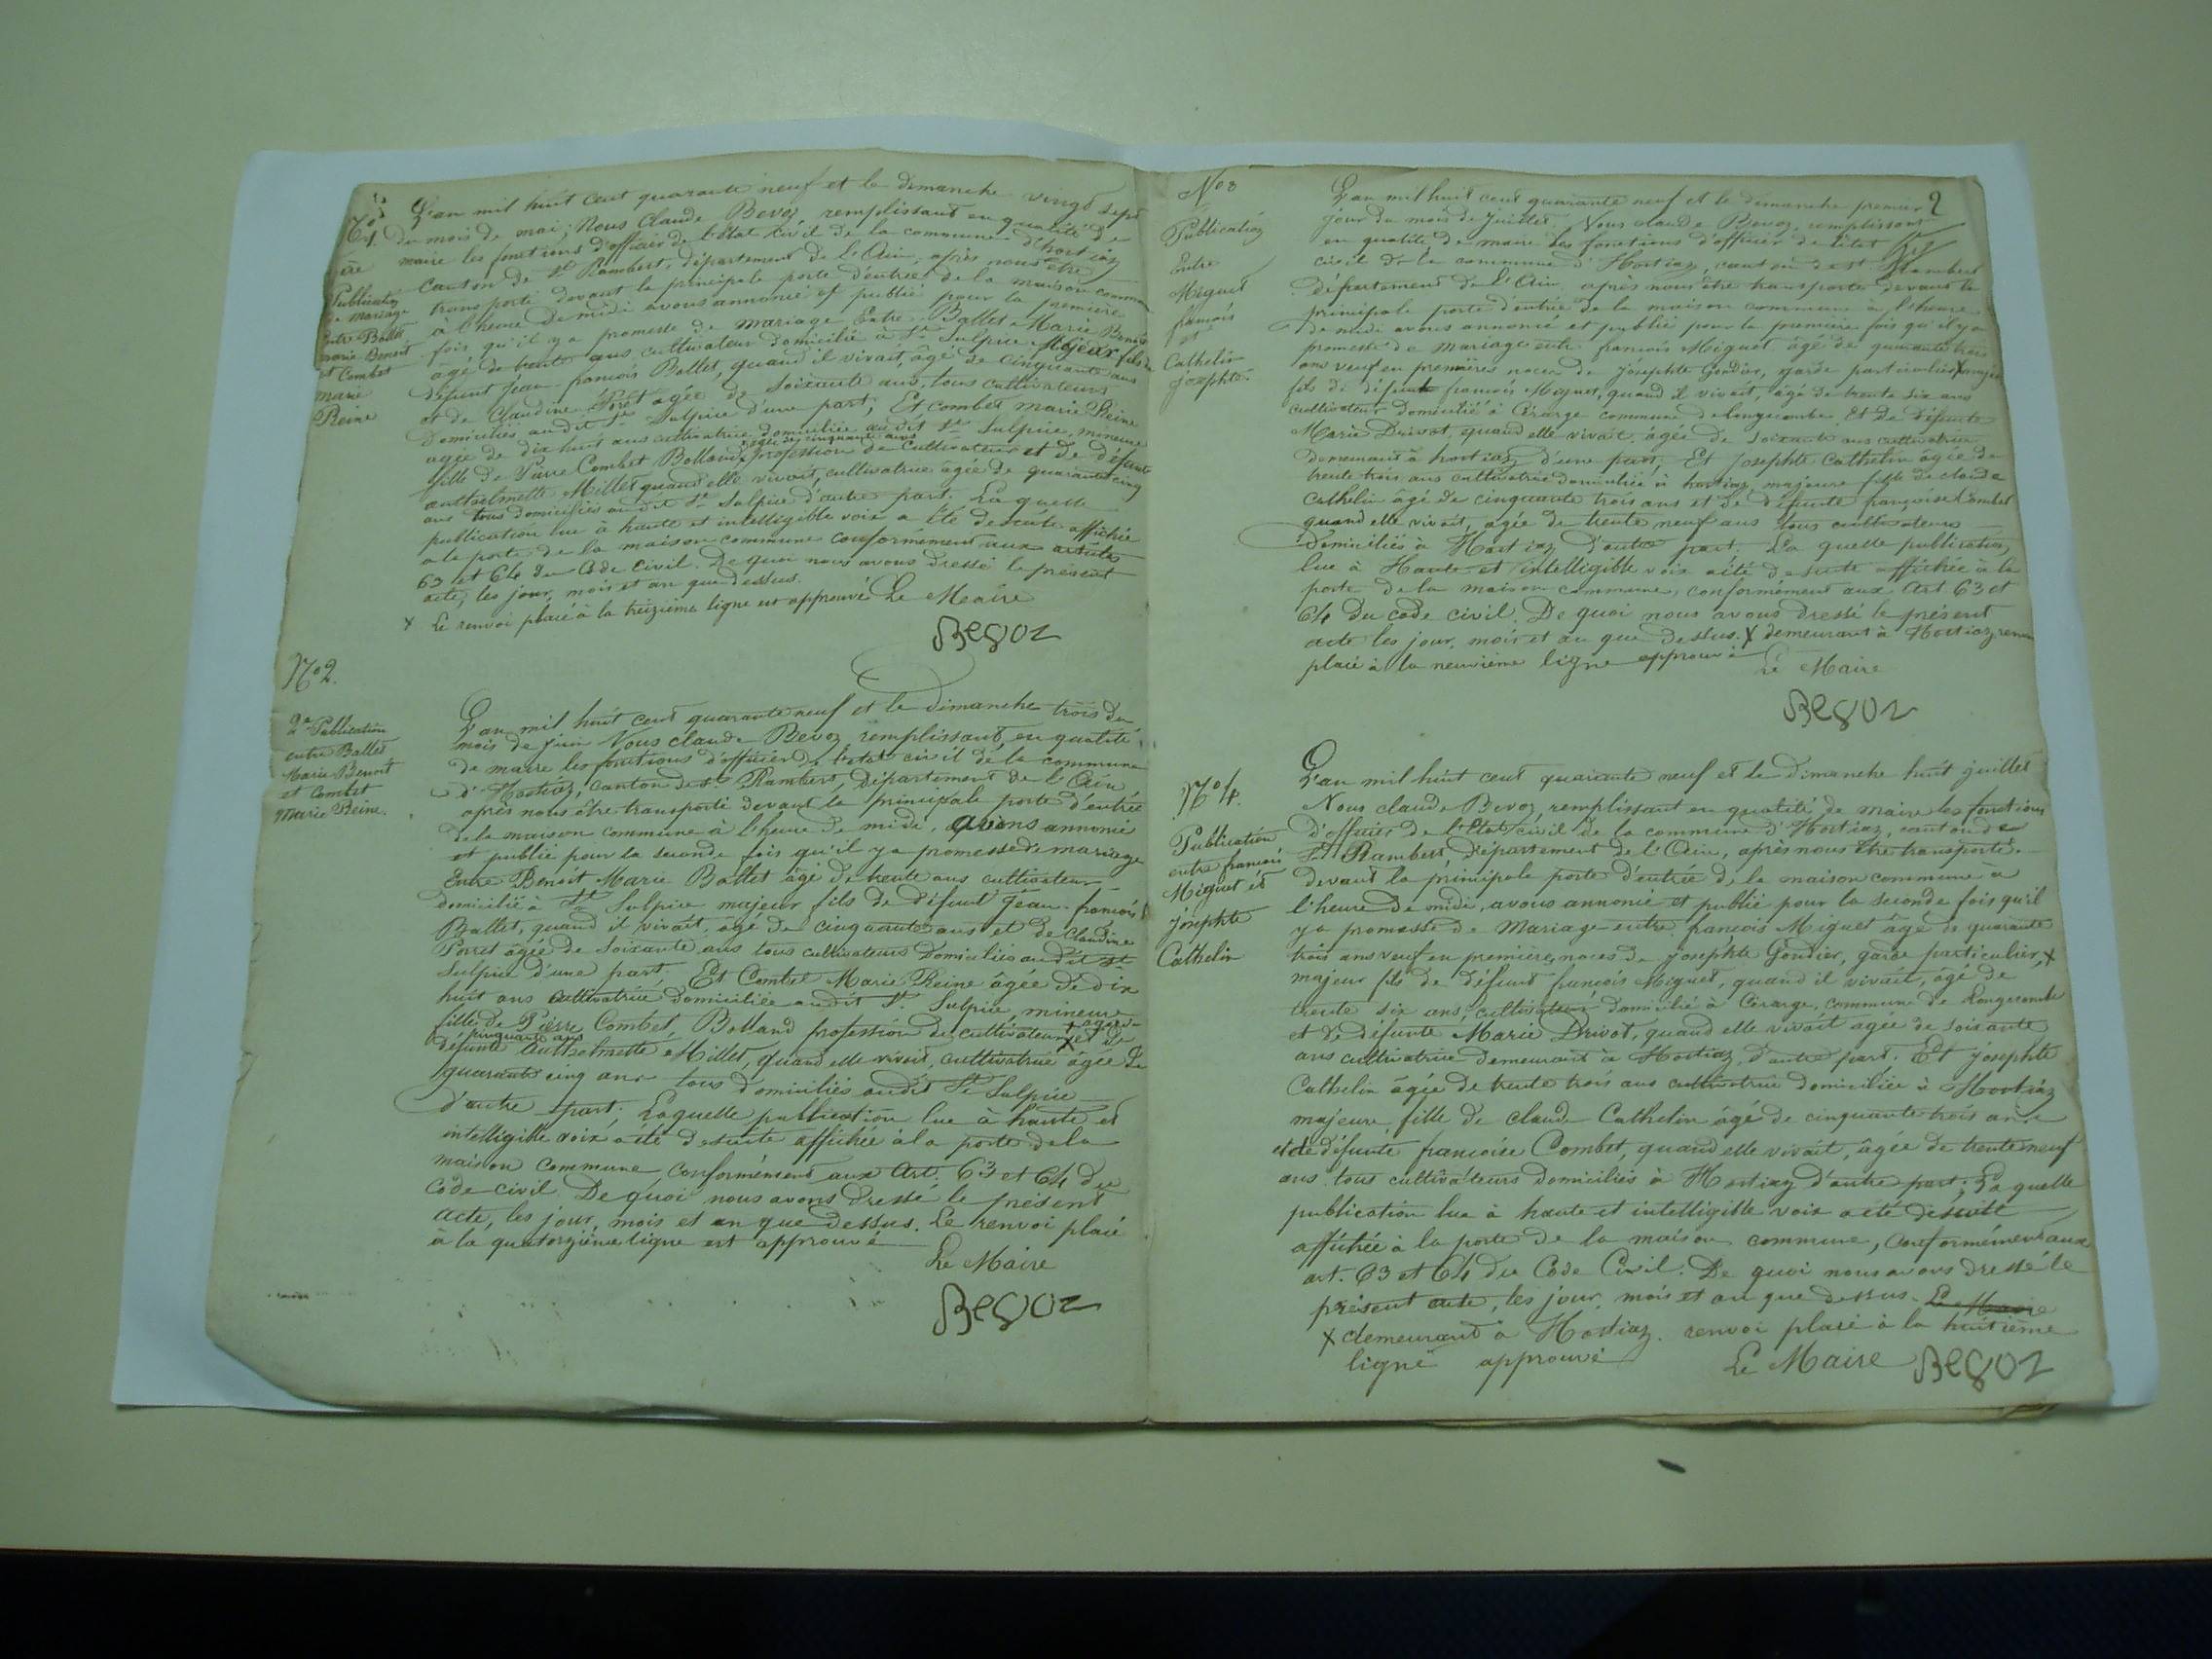 N° 1
1ère
Publication
de mariage
entre Ballet
marie Benoit
et Combet
marie
Reine
L'an mil huit cent quarante neuf et le dimanche vingt sept
du mois de mai; Nous Claude Bevoz, remplissant en qualité de
maire les fonctions d'officier de l'état civil de la commune d'hortiaz
Canton de St Rambert, département de l'Ain, après nous être
transporté devant la principale porte d'entrée de la maison commune
à l'heure de midi avons annoncé et publié pour la première
fois qu'il y a promesse de mariage Entre Ballet Marie Benoit
âgé de trente ans cultivateur domicilié à St Sulpice Majeur fils de
défunt Jean françois Ballet, quand il vivait, âgé de cinquante ans
et de Claudine Poret agée de soixante ans, tous cultivateurs
Domiciliés audit St Sulpice d'une part; Et combet marie Reine
agée de dix huit ans cultivatrice domiciliée audit St Sulpice, mineure
agé de cinquante ans
fille de Pierre Combet Bolland x profession de Cultivateur et de défunte
anthelmette Millet quand elle vivait, cultivatrice agée de quarante cinq
ans tous domiciliés audit St Sulpice d'autre part. La quelle
publication lue à haute et intelligible voix a été de suite affichée
a la porte de la maison commune conformément aux article
63 et 64 du Code civil. De quoi nous avons dressé le présent
acte, les jour, mois et an que dessus.
x Le renvoi placé à la treizième ligne est approuvé Le Maire
Bevoz
N° 2.
2e Publication
entre Ballet
Marie Benoit
et Combet
Marie Reine.
L'an mil huit cent quarante neuf et le dimanche trois du
mois de juin Nous claude Bevoz remplissant en qualité
de maire les fonctions d'officier de l'état civil de la commune
d'Hostiaz, canton de St Rambert, Département de l'Ain
après nous être transporté devant la principale porte d'entrée
de la maison commune à l'heure de midi, avons annoncé
et publié pour la seconde fois qu'il y a promesse de mariage
Entre Benoit Marie Ballet âgé de trente ans cultivateur
domicilié à St Sulpice majeur fils de défunt Jean françois
Ballet, quand il vivait, âgé de cinquante ans et de Claudine
Porret âgée de soixante ans tous cultivateurs Domiciliés audit St
Sulpice d'une part; Et Combet Marie Reine âgée de dix
huit ans cultivatrice domiciliée audit St Sulpice, mineure
fille de Pierre Combet, Bolland profession de cultivateur x agé de
cinquante ans et de
défunte Anthelmette Millet, quand elle vivait, cultivatrice âgée de
quarante cinq ans tous domiciliés audit St Sulpice
d'autre part; Laquelle publication lue à haute et
intelligible voix a été de suite affichée à la porte de la
maison commune conformément aux Art. 63 et 64 du
Code civil. De quoi nous avons dressé le présent
acte, les jour, mois et an que dessus. Le renvoi placé
à la quatorzième ligne est approuvé
Le Maire
Bevoz
2
N° 3
Publication
Entre
Miguet
françois
et
Cathelin
Josephte.
L'an mil huit cent quarante neuf et le dimanche premier
jour du mois de juillet, Nous claude Bevoz, remplissant
en qualité de maire les fonctions d'officier de l'état
civil de la commune d'Hostiaz, canton de St Rambert
Département de l'Ain, après nous être transporté devant la
principale porte d'entrée de la maison commune à l'heure
de midi avons annoncé et publié pour la première fois qu'il y a
promesse de mariage entre françois Miguet âgé de quarante trois
ans veuf en premières noces de Josephte Gondier, garde particulier x majeur
fils de défunt françois Miguet, quand il vivait, âgé de trente six ans
cultivateur domicilié à Cérarge commune de longecombe, Et de défunte
Marie Drivot, quand elle vivait, âgée de soixante ans cultivatrice
demeurant à hostiaz d'une part; Et Josephte Cathelin âgée de
trente trois ans cultivatrice domiciliée à hostiaz majeure fille de claude
Cathelin âgé de cinquante trois ans et de défunte françoise Combet
quand elle vivait, agée de trente neuf ans tous cultivateurs
Domiciliés à Hostiaz d'autre part. La quelle publication
lue à Haute et intelligible voix a été de suite affichée à la
porte de la maison commune, conformément aux Art 63 et
64 du code civil. De quoi nous avons dressé le présent
acte les jour, mois et an que dessus. x demeurant à Hostiaz renvoi
placé à la neuvième ligne approuvé
Le Maire
Bevoz
N° 4.
Publication
entre françois
Miguet et
Josephte
Cathelin
L'an mil huit cent quarante neuf et le dimanche huit juillet
Nous claude Bevoz, remplissant en qualité de maire les fonctions
d'officier de l'Etat civil de la commune d'Hostiaz, canton de
St Rambert, Département de l'Ain, après nous être transporté
devant la principale porte d'entrée de la maison commune à
l'heure de midi, avons annoncé et publié pour la seconde fois qu'il
y a promesse de Mariage entre françois Miguet âgé de quarante
trois ans veuf en premières noces de Josephte Gondier, garde particulier, x
majeur fils de défunt françois Miguet, quand il vivait, âgé de
trente six ans, cultivateur domicilié à Cérarge, commune de Longecombe
et de défunte Marie Drivot, quand elle vivait agée de soixante
ans cultivatrice demeurant à Hostiaz, d'autre part. Et josephte
Cathelin âgée de trente trois ans cultivatrice domiciliée à Hostiaz
majeure, fille de claude Cathelin âgé de cinquante trois ans
et de défunte françoise Combet, quand elle vivait, âgée de trente neuf
ans tous cultivateurs domiciliés à Hostiaz d'autre part; La quelle
publication lue à haute et intelligible voix a été de suite
affichée à la porte de la maison commune, conformément aux
art. 63 et 64 du Code Civil. De quoi nous avons dressé le
présent acte, les jour, mois et an que dessus. Le Maire
x demeurant à Hostiaz. renvoi placé à la huitième
ligne approuvé Le Maire Bevoz